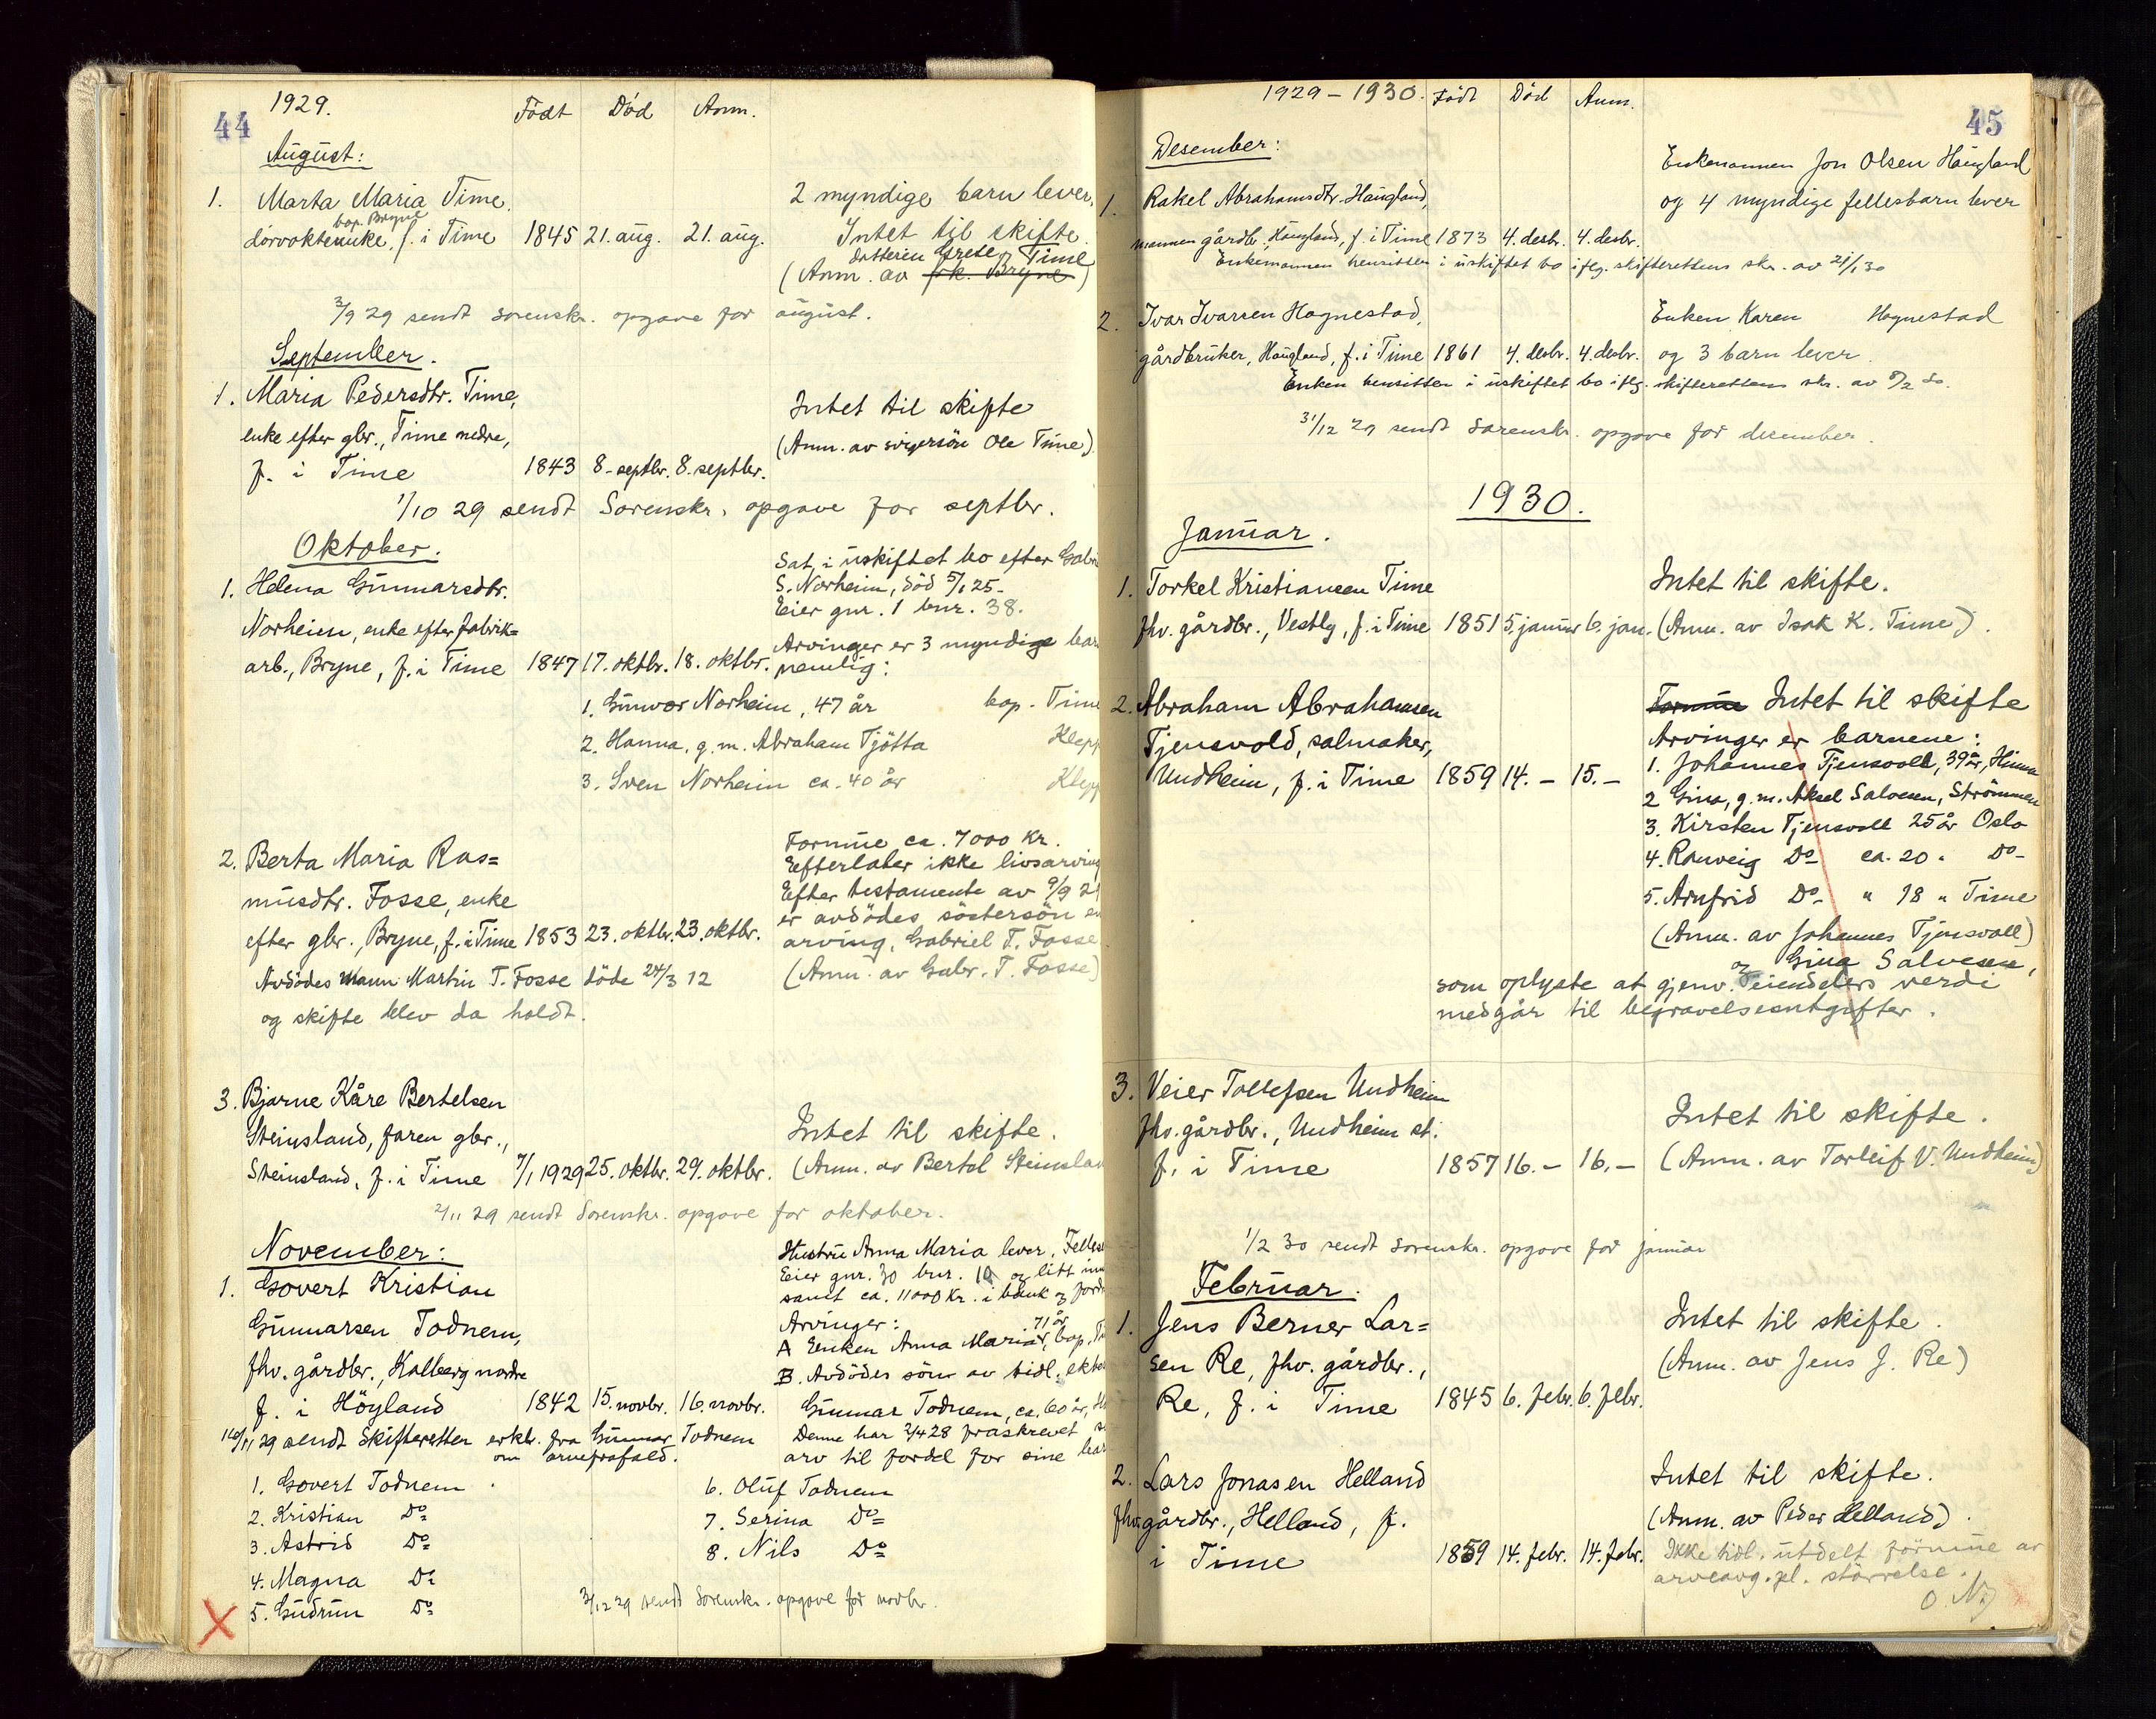 44
1929.
Født Død Anm.
August:
1. Marta Maria Time,
bop. Bryne
dørvokterenke, f. i Time 1845 21. aug. 21. aug.
2 myndige barn lever,
Intet til skifte
datteren Grete Time
(Anm. av frk. Bryne)
3/9 29 sendt Sorenskr. opgave for august.
September.
1. Maria Pedersdtr. Time,
enke efter gbr., Time nedre,
f. i Time 1843 8. septbr. 8. septbr.
Intet til skifte
(Anm. av svigersøn Ole Time)
1/10 29 sendt Sorenskr. opgave for septbr.
Oktober.
1. Helena Gunnarsdtr.
Norheim, enke efter fabrik=
arb., Bryne, f. i Time 1847 17. oktbr. 18. oktbr.
Sat i uskiftet bo efter Gabr
S. Norheim, död 5/1 25.
Eier gnr. 1 bnr. 38.
Arvinger er 3 myndige bar
nemlig:
1. Gunvor Norheim, 47 år bop. Time
2. Hanna, g. m. Abraham Tjötta Klepp
3. Sven Norheim ca. 40 år Klepp
2. Berta Maria Ras=
musdtr. Fosse, enke
efter gbr., Bryne, f. i Time 1853 23. oktbr. 23. oktbr.
Avdödes mann Martin T. Fosse döde 24/3 12
og skifte blev da holdt.
Formue ca. 7000 kr.
Efterlater ikke livsarving
Efter testamente av 9/9 2
er avdödes söstersön en
arving, Gabriel T. Fosse
(Anm. av Gabr. T. Fosse)
3. Bjarne Kåre Bertelsen
Steinsland, faren gbr.,
Steinsland, f. i Time 7/1 1929 25. oktbr. 29. oktbr.
Intet til skifte.
(Anm. av Bertel Steinslan
2/11 29 sendt Sorenskr. opgave for oktober.
November:
1. Govert Kristian
Gunnarsen Todnem,
fhv. gårdbr., Kalberg nordre
f. i Höyland 1842 15. novbr. 16. novbr.
Hustru Anna Maria lever, Felles
Eier gnr. 30 bnr. 10 og litt inn
samt ca. 11000 kr. i bank og ford
Arvinger: 71 år
A Enken Anna Maria, bop. T
B. Avdödes sönn av tidl. ekte
Gunnar Todnem, ca. 60 år, H
Denne har 2/4 28 fraskrevet s
arv til fordel for sine bar
16/11 29 sendt Skifteretten erkl. fra Gunnar Todnem
om arvefrafald.
1. Govert Todnem
2. Kristian Do
3. Astrid Do
4. Magna Do
5. Gudrun Do
6. Oluf Todnem
7. Serina Do
8. Nils Do
3/12 29 sendt Sorenskr. opgave for novbr.
45
1929 – 1930. Født Död Anm.
Desember:
1. Rakel Abrahamsdtr. Haugland,
mannen gårdbr., Haugland, f. i Time 1873 4. desbr. 4. desbr.
Enkemannen Jon Olsen Haugland
og 4 myndige fellesbarn lever
Enkemannen hensitter i uskiftet bo iflg. skifterettens skr. av 21/1 30
2. Ivar Ivarsen Hognestad,
gårdbruker, Haugland, f. i Time 1861 4. desbr. 4. desbr.
Enken Karen Hognestad
og 3 barn lever
Enken hensitter i uskiftet bo iflg. skifterettens skr. av 5/2 30.
31/12 29 sendt Sorenskr. opgave for desember.
1930.
Januar.
1. Torkel Kristiansen Time
fhv. gårdbr., Vestly, f. i Time 1851 5. januar 6. jan.
Intet til skifte.
(Anm. av Isak K. Time).
2. Abraham Abrahamsen
Tjensvold, salmaker,
Undheim, f. i Time 1859 14. – 15. –
Formue Intet til skifte
Arvinger er barnene:
1. Johannes Tjensvoll, 39 år, Hinna
2 Gina, g. m. Aksel Salvesen, Strömmen
3. Kirsten Tjensvoll 25 år Oslo
4. Ranveig Do ca. 20 " Do
5. Arnfrid Do " 18 " Time
(Anm. av Johannes Tjensvoll)
og Gina Salvesen,
som oplyste at gjenv. eiendelers verdi
medgår til begravelsesutgifter.
3. Veier Tollefsen Undheim
fhv. gårdbr., Undheim st.
f. i Time 1857 16. – 16. –
Intet til skifte.
(Anm. av Torleif V. Undheim)
1/2 30 sendt Sorenskr. opgave for januar
Februar.
1. Jens Berner Lar=
sen Re, fhv. gårdbr.,
Re, f. i Time 1845 6. febr. 6. febr.
Intet til skifte.
(Anm. av Jens J. Re)
2. Lars Jonasen Helland
fhv. gårdbr., Helland, f.
i Time 1859 14. febr. 14. febr.
Intet til skifte.
(Anm. av Peder Helland).
Ikke tidl. utdelt formue av
arveavg. pl. størrelse.
O. N.